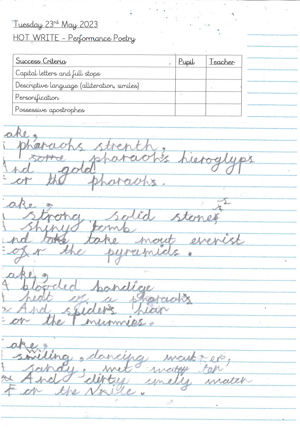 Tuesday 23rd May 2023
HOT WRITE - Performance Poetry
Success Criteria Pupil Teacher
Capital letters and full stops
Descriptive language (alliteration, similes)
Personification
Possessive apostrophes
ake,
pharaohs strenth,
some pharaoh's hieroglyps
nd gold
or the pharaohs.
ake,
strong solid stones
shiny tomb
nd take most
the pyramids.
ake,
A blooded bandige
heat of a pharaohs
And spiders
or the mummies.
ake,
smiling, dancing
sandy, wet
And dirty
For the